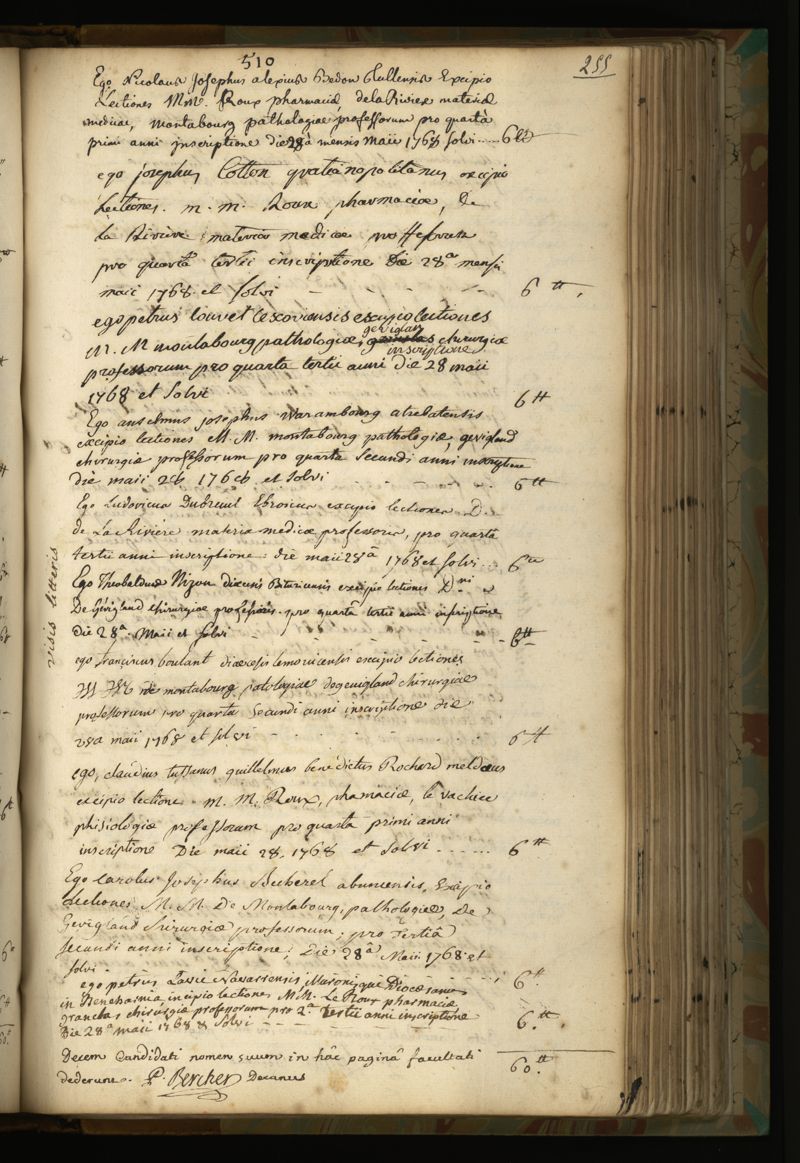 510
255
Ego Nicolaus Josephus alexius Bedon tullensis Excipio
Lectiones M.M. Roux pharmaciæ, de la Riviere materiæ
medicæ, Montabourg pathologiæ professorum pro quartâ
primi anni inscriptione die 28â mensis Maii 1768 solvi ..... 6 tt
ego josephus Cotton gratianopolitanus excipio
Lectiones m. m. Roux pharmaciæ, De
La Riviere materiæ medicæ professorum
pro quartâ tertii inscriptione Die 28a mensis
maii 1768 et solvi - - - - - 6 tt.
ego petrus louvet lexoviensis excipio lectiones
M. M montabourg pathologiæ, gevigland chirurgiæ
professorum pro quarta tertii anni inscriptione die 28 maii
1768 et solvi 6 tt
Ego anselmus josephus Warambourg atrebatensis
excipio lectiones M. M. montabourg pathologiæ, gevigland
chirurgiæ professorum pro quarta secundi anni inscriptione
die maii 28 1768 et solvi - - - - - 6 tt
Ego Ludovicus Dubreuil Ebroicus excipio lectiones D.
de La Riviére materiæ medicæ professoris, pro quarta
tertii anni inscriptione die maii 28â 1768 et solvi .. 6 tt
visis litteris
Ego Theobaldus Nizon diœcesis Bituricensis excipio lectiones D.ni
De Gévigland chirurgiæ professoris pro quartâ tertii anni inscriptione
die 28a. Maii et solvi - - - - - 6 tt
ego franciscus boulant diœcesis lemovicensis excipio lectiones
de montabourg patologiæ de gevigland chirurgiæ
professorum pro quarta secundi anni inscriptione die
28a maii 1768 et solvi - - - - - 6 tt
ego, claudius tussanus guillelmus benédictus Rochard meldæus
excipio lectiones m. M. Roux, phamaciæ, le vacher
phisiologiæ professorum pro quarta primi anni
inscriptione Die maii 28. 1768 et solvi ...... 6 tt
Ego Carolus Josephus Becherel excipio
Lectiones M. M. De Montabourg, pathologiæ, De
Gevigland chirurgiæ professorum; pro Tertiâ
secundi anni inscriptione; Die 28â Maii 1768 et
solvi - - - - - 6 tt
ego petrus Navarrensis
in Benehasmia, incipio lectiones M.M. Le Roux pharmaciæ
chirurgiæ professorum pro 2.a tertii anni inscriptione
Die 28â maii 1768 & solvi - - - - 6. tt
Decem Candidati nomen suum in hâc paginâ facultati 60. tt
dederunt. P. Bercher Decanus